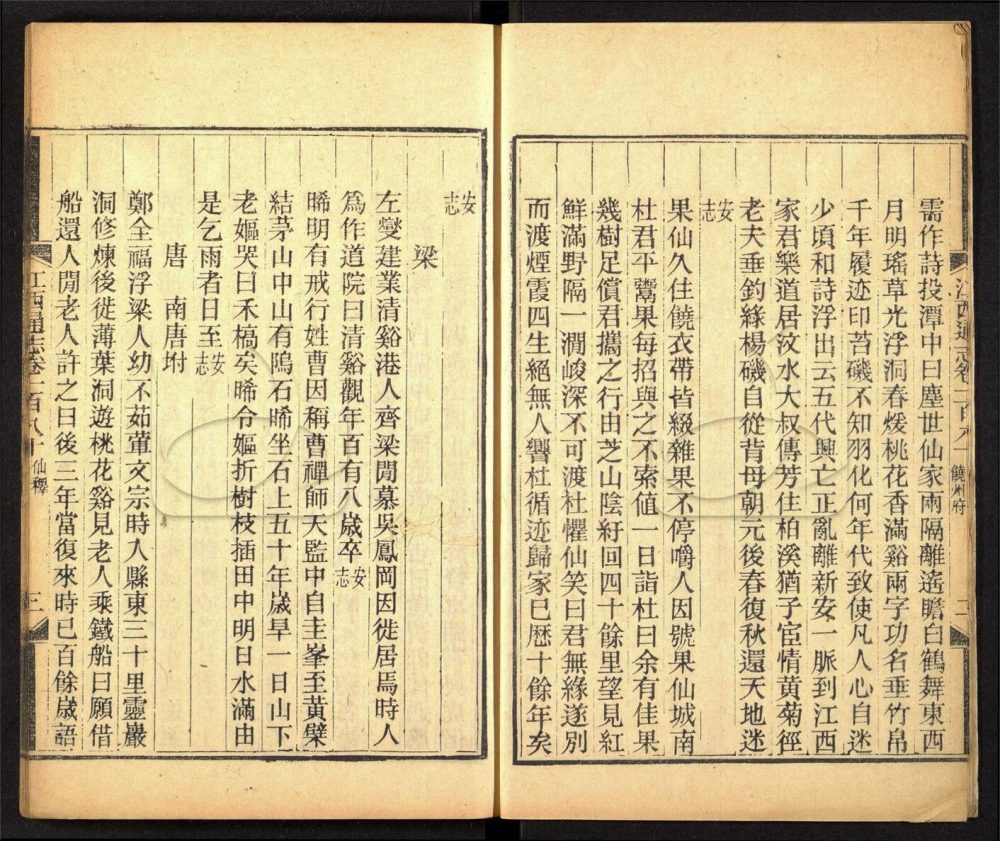 需作詩投潭中曰塵世仙家兩隔離遙瞻白鶴舞東西
月明瑤草光浮洞春煖桃花香滿谿兩字功名垂竹帛
千年履迹印苔磯不知羽化何年代致使凡人心自迷
少頃和詩浮出云五代興亡正亂離新安一脈到江西
家君樂道居汶水大叔傳芳住柏溪猶子宦情黄菊徑
老夫垂釣綠楊磯自從背母朝元後春復秋還天地迷
安志
果仙久住饒衣帶皆綴雜果不停嚼人因號果仙城南
杜君平鬻果每招與之不索值一日詣杜曰余有佳果
幾樹足償君攜之行由芝山陰紆回四十餘里望見紅
鮮滿野隔一澗峻深不可渡杜懼仙笑曰君無緣遂別
而渡煙霞四生絕無人響杜循迹歸家已歴十餘年矣
江西通志卷一百八十 饒州府 二
安志
梁
左夔建業清谿港人齊梁閒慕吳鳳岡因徙居焉時人
爲作道院曰清谿觀年百有八歲卒安志
晞明有戒行姓曹因稱曹禪師天監中自圭峯至黃檗
結茅山中山有隖石晞坐石上五十年歲旱一日山下
老嫗哭曰禾槁矣晞令嫗折樹枝插田中明日水滿由
是乞雨者日至安志
唐 南唐坿
鄭全福浮梁人幼不茹葷文宗時入縣東三十里靈巖
洞修煉後徙薄葉洞遊桃花谿見老人乘鐵船曰願借
船還人閒老人許之曰後三年當復來時已百餘歲語
江西通志卷一百八十 仙釋 三